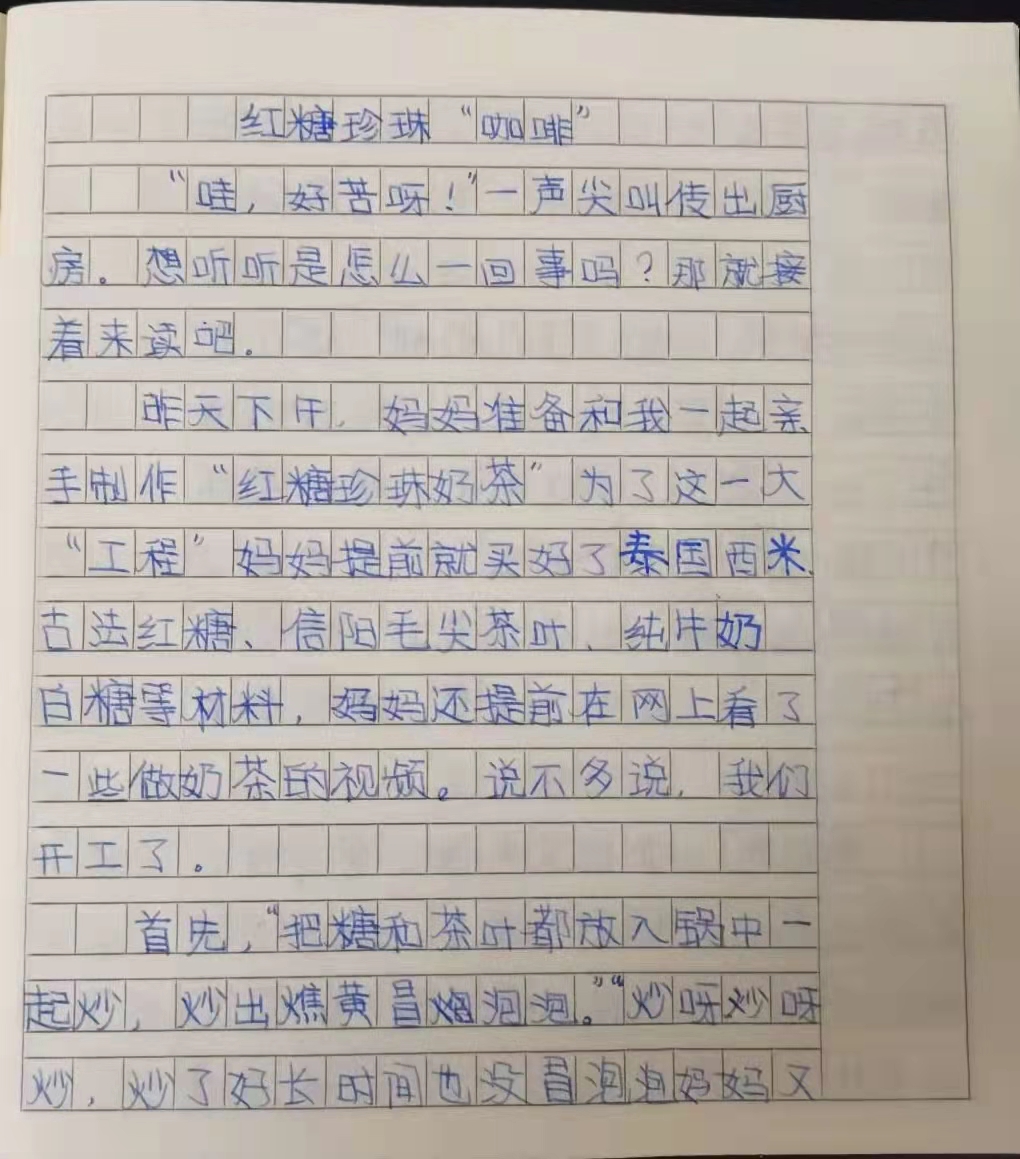 红糖珍珠“咖啡”
“哇，好苦呀！”一声尖叫传出厨
房。想听听是怎么一回事吗？那就接
着来读吧。
昨天下午，妈妈准备和我一起亲
手制作“红糖珍珠奶茶”为了这一大
“工程”妈妈提前就买好了泰国西米、
古法红糖、信阳毛尖茶叶、纯牛奶
白糖等材料，妈妈还提前在网上看了
一些做奶茶的视频。说不多说，我们
开工了。
首先，“把糖和茶叶都放入锅中一
起炒，炒出焦黄冒烟泡泡。”“炒呀炒呀
炒，炒了好长时间也没冒泡泡妈妈又